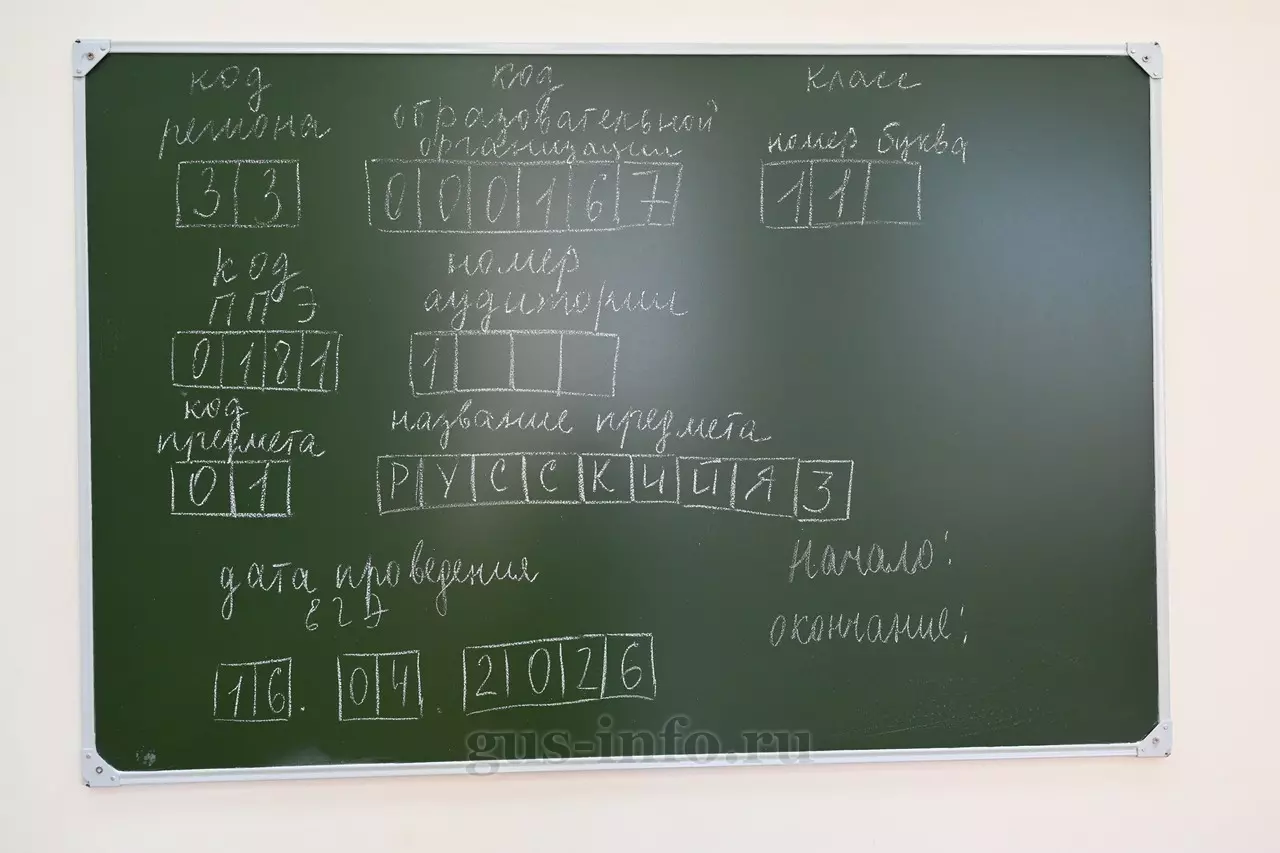 код
региона
33
код
образовательной
организации
000167
класс
номер буква
11
код
ППЭ
0181
номер
аудитории
1
код
предмета
01
название предмета
РУССКИЙЯЗ
дата проведения
ЕГЭ
16. 04. 2026
Начало:
окончание:
gus-info.ru